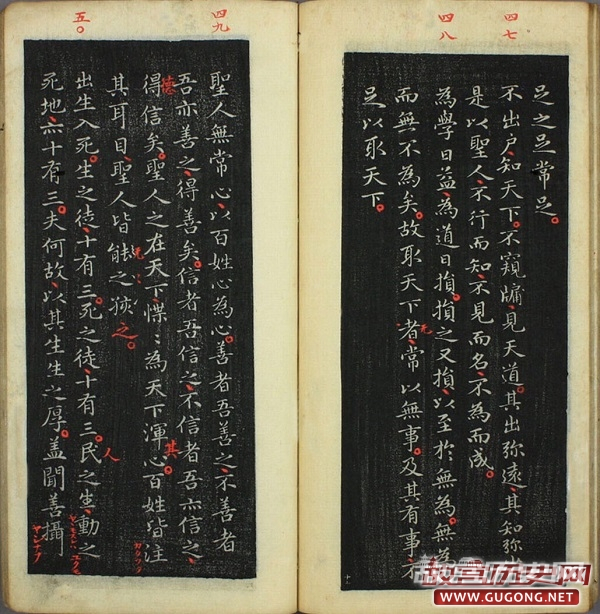 四七
四八
足之足常足。
不出户、知天下。不窺牖、見天道。其出弥遠、其知弥
是以聖人不行而知、不見而名、不為而成。
為學日益、為道日損、損之又損、以至於無為。無為
而無不為矣。故取天下者、常以無事。及其有事、不
足以取天下。
四九
五〇
聖人無常心、以百姓心為心。善者吾善之、不善者
吾亦善之、得善矣。信者吾信之、不信者吾亦信之、
德
其
得信矣。聖人之在天下、惵〻為天下渾心。百姓皆注
其耳目、聖人皆之。
出生入死。生之徒、十有三。死之徒、十有三。民之生、動之
人
死地、亦十有三。夫何故、以其生生之厚。蓋聞善攝
ヤシナフ
故宫历史网
WWW.GUGONG.NET